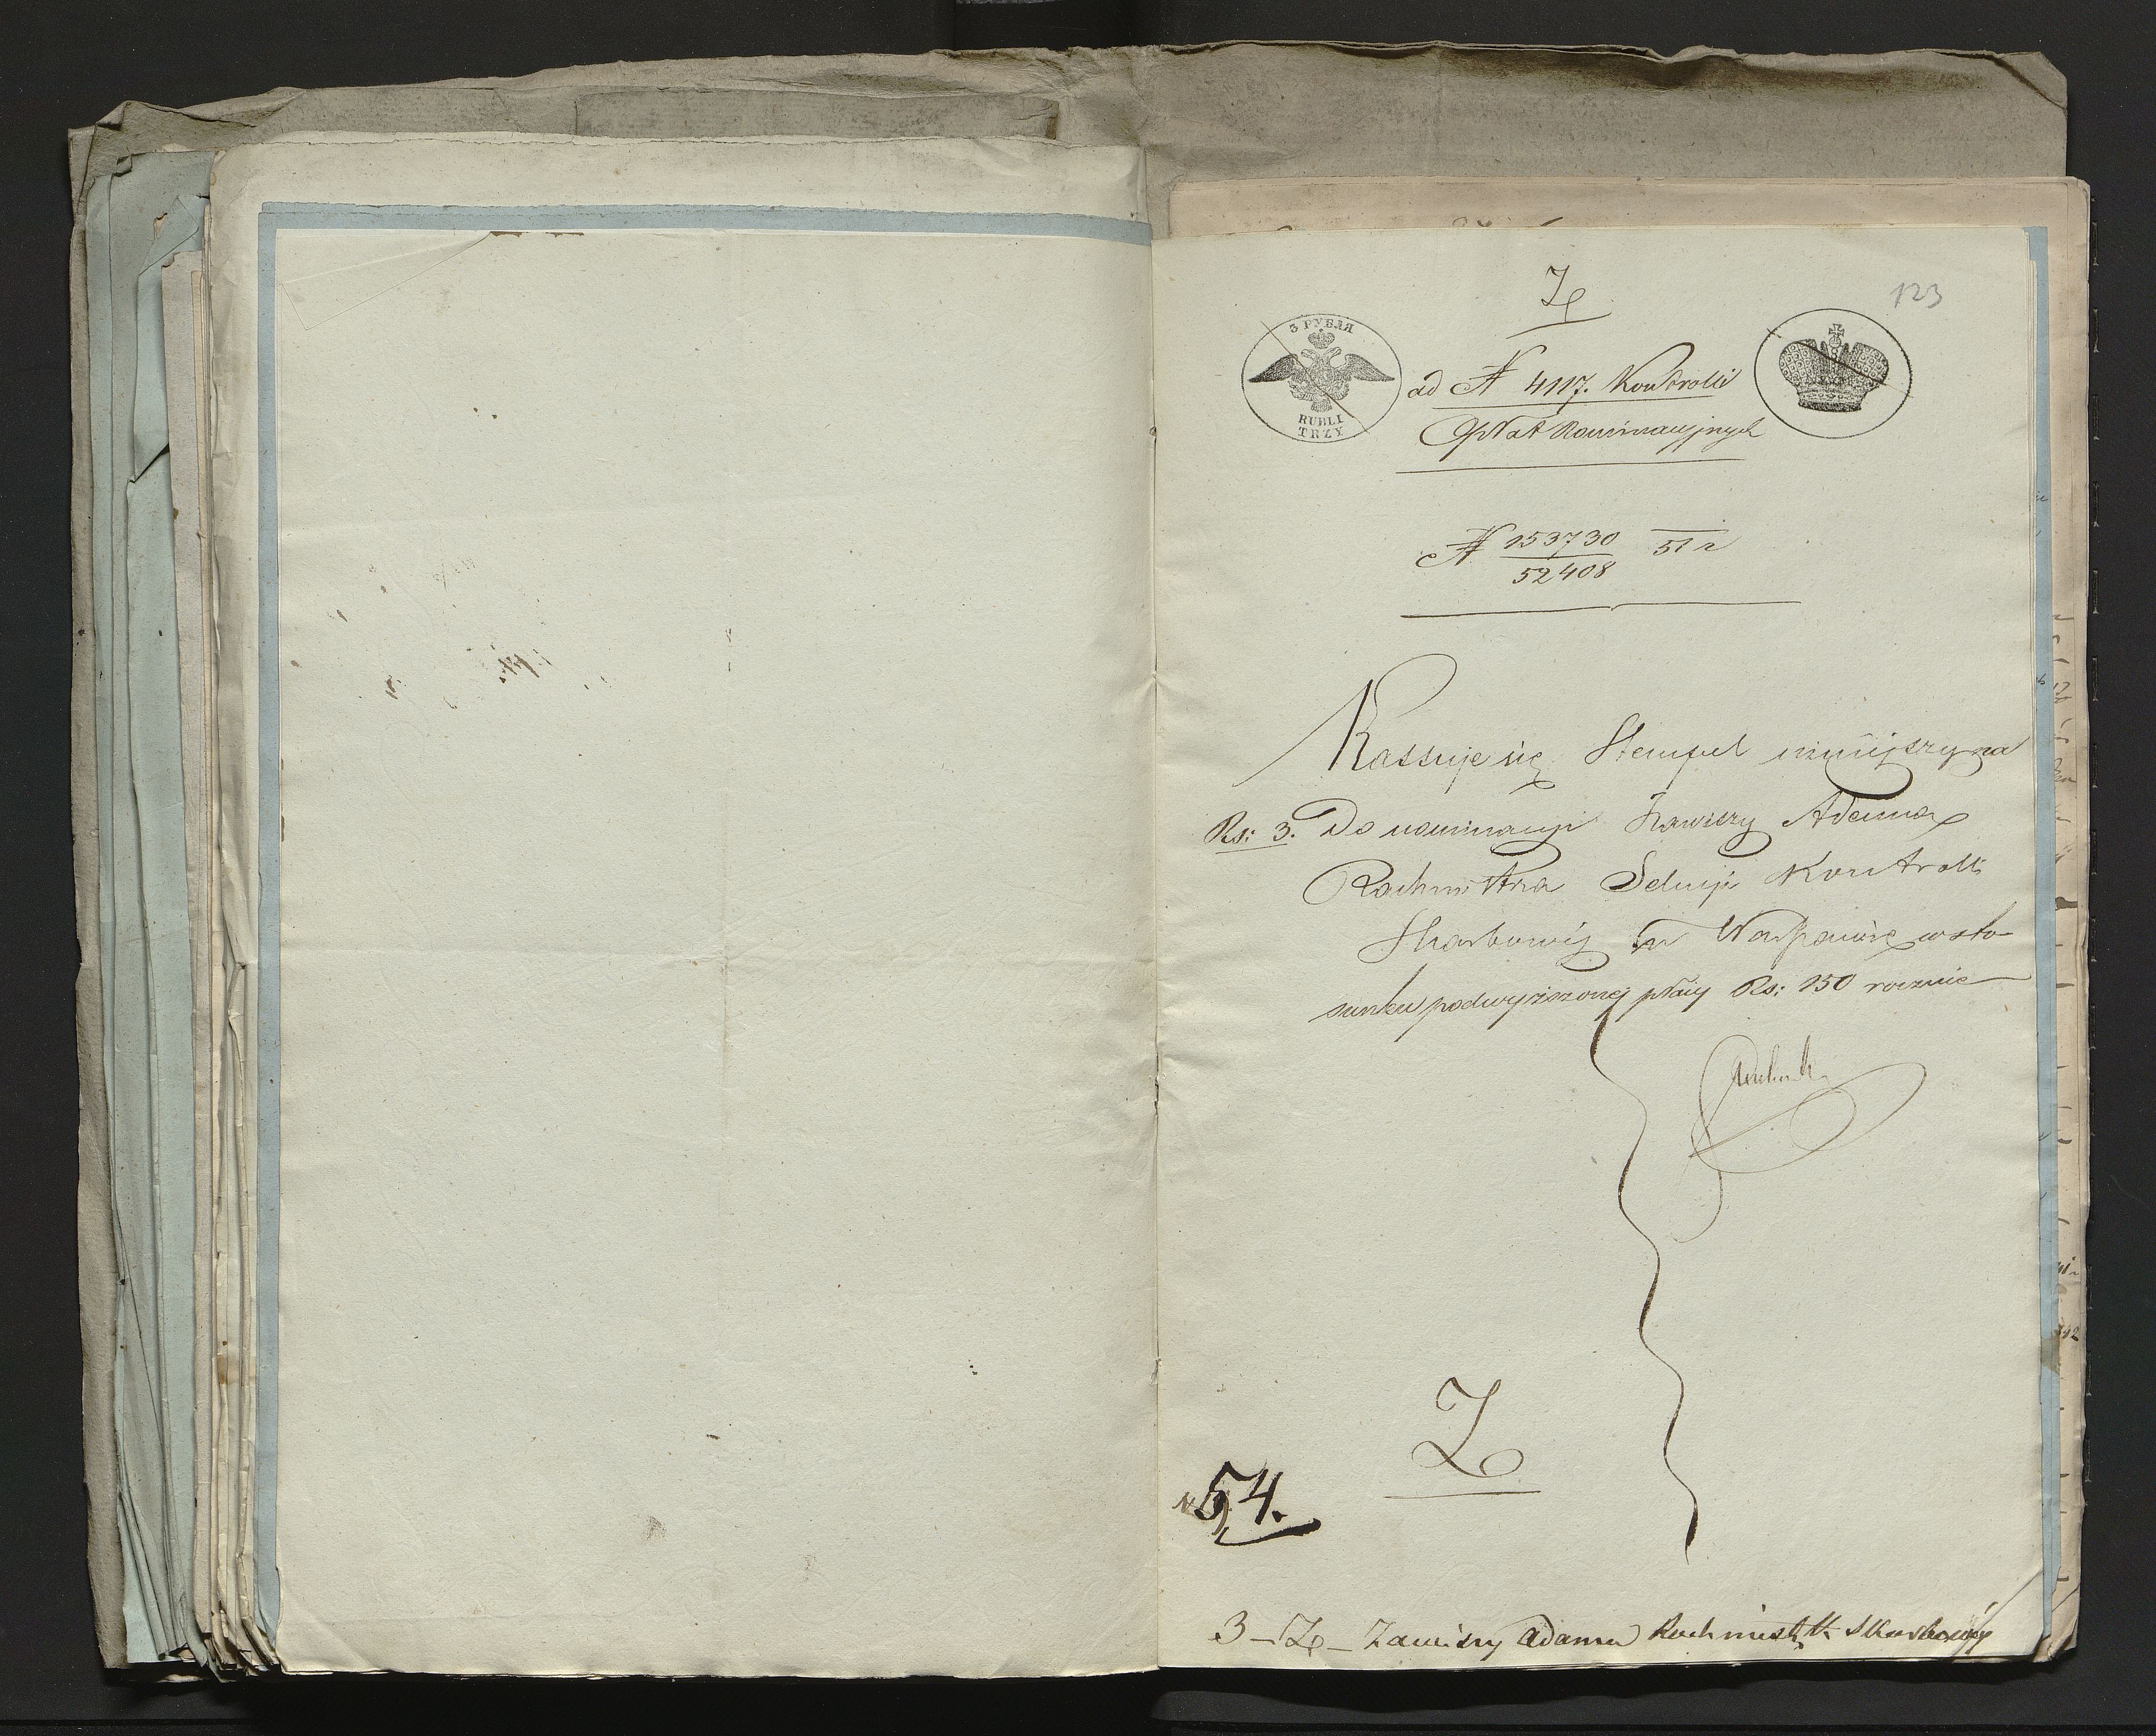 Z
123
3 РУБЛЯ
RUBLI
TRZY
ad N 4117. Kontrolli
Opłat Nominacyjnych
N 153730 51 r
52408
Kassuje się Stempel niniejszy na
Rs: 3. Do nominacyi Zawiszy Adama
Rachmistrza Sekcyi Kontrolli
Skarbowéj w Warszawie w sto-
sunku podwyższonej płacy Rs: 150 rocznie
Z
54.
3 – Z – Zawiszy Adama Rachmist. K. Skarbowéj